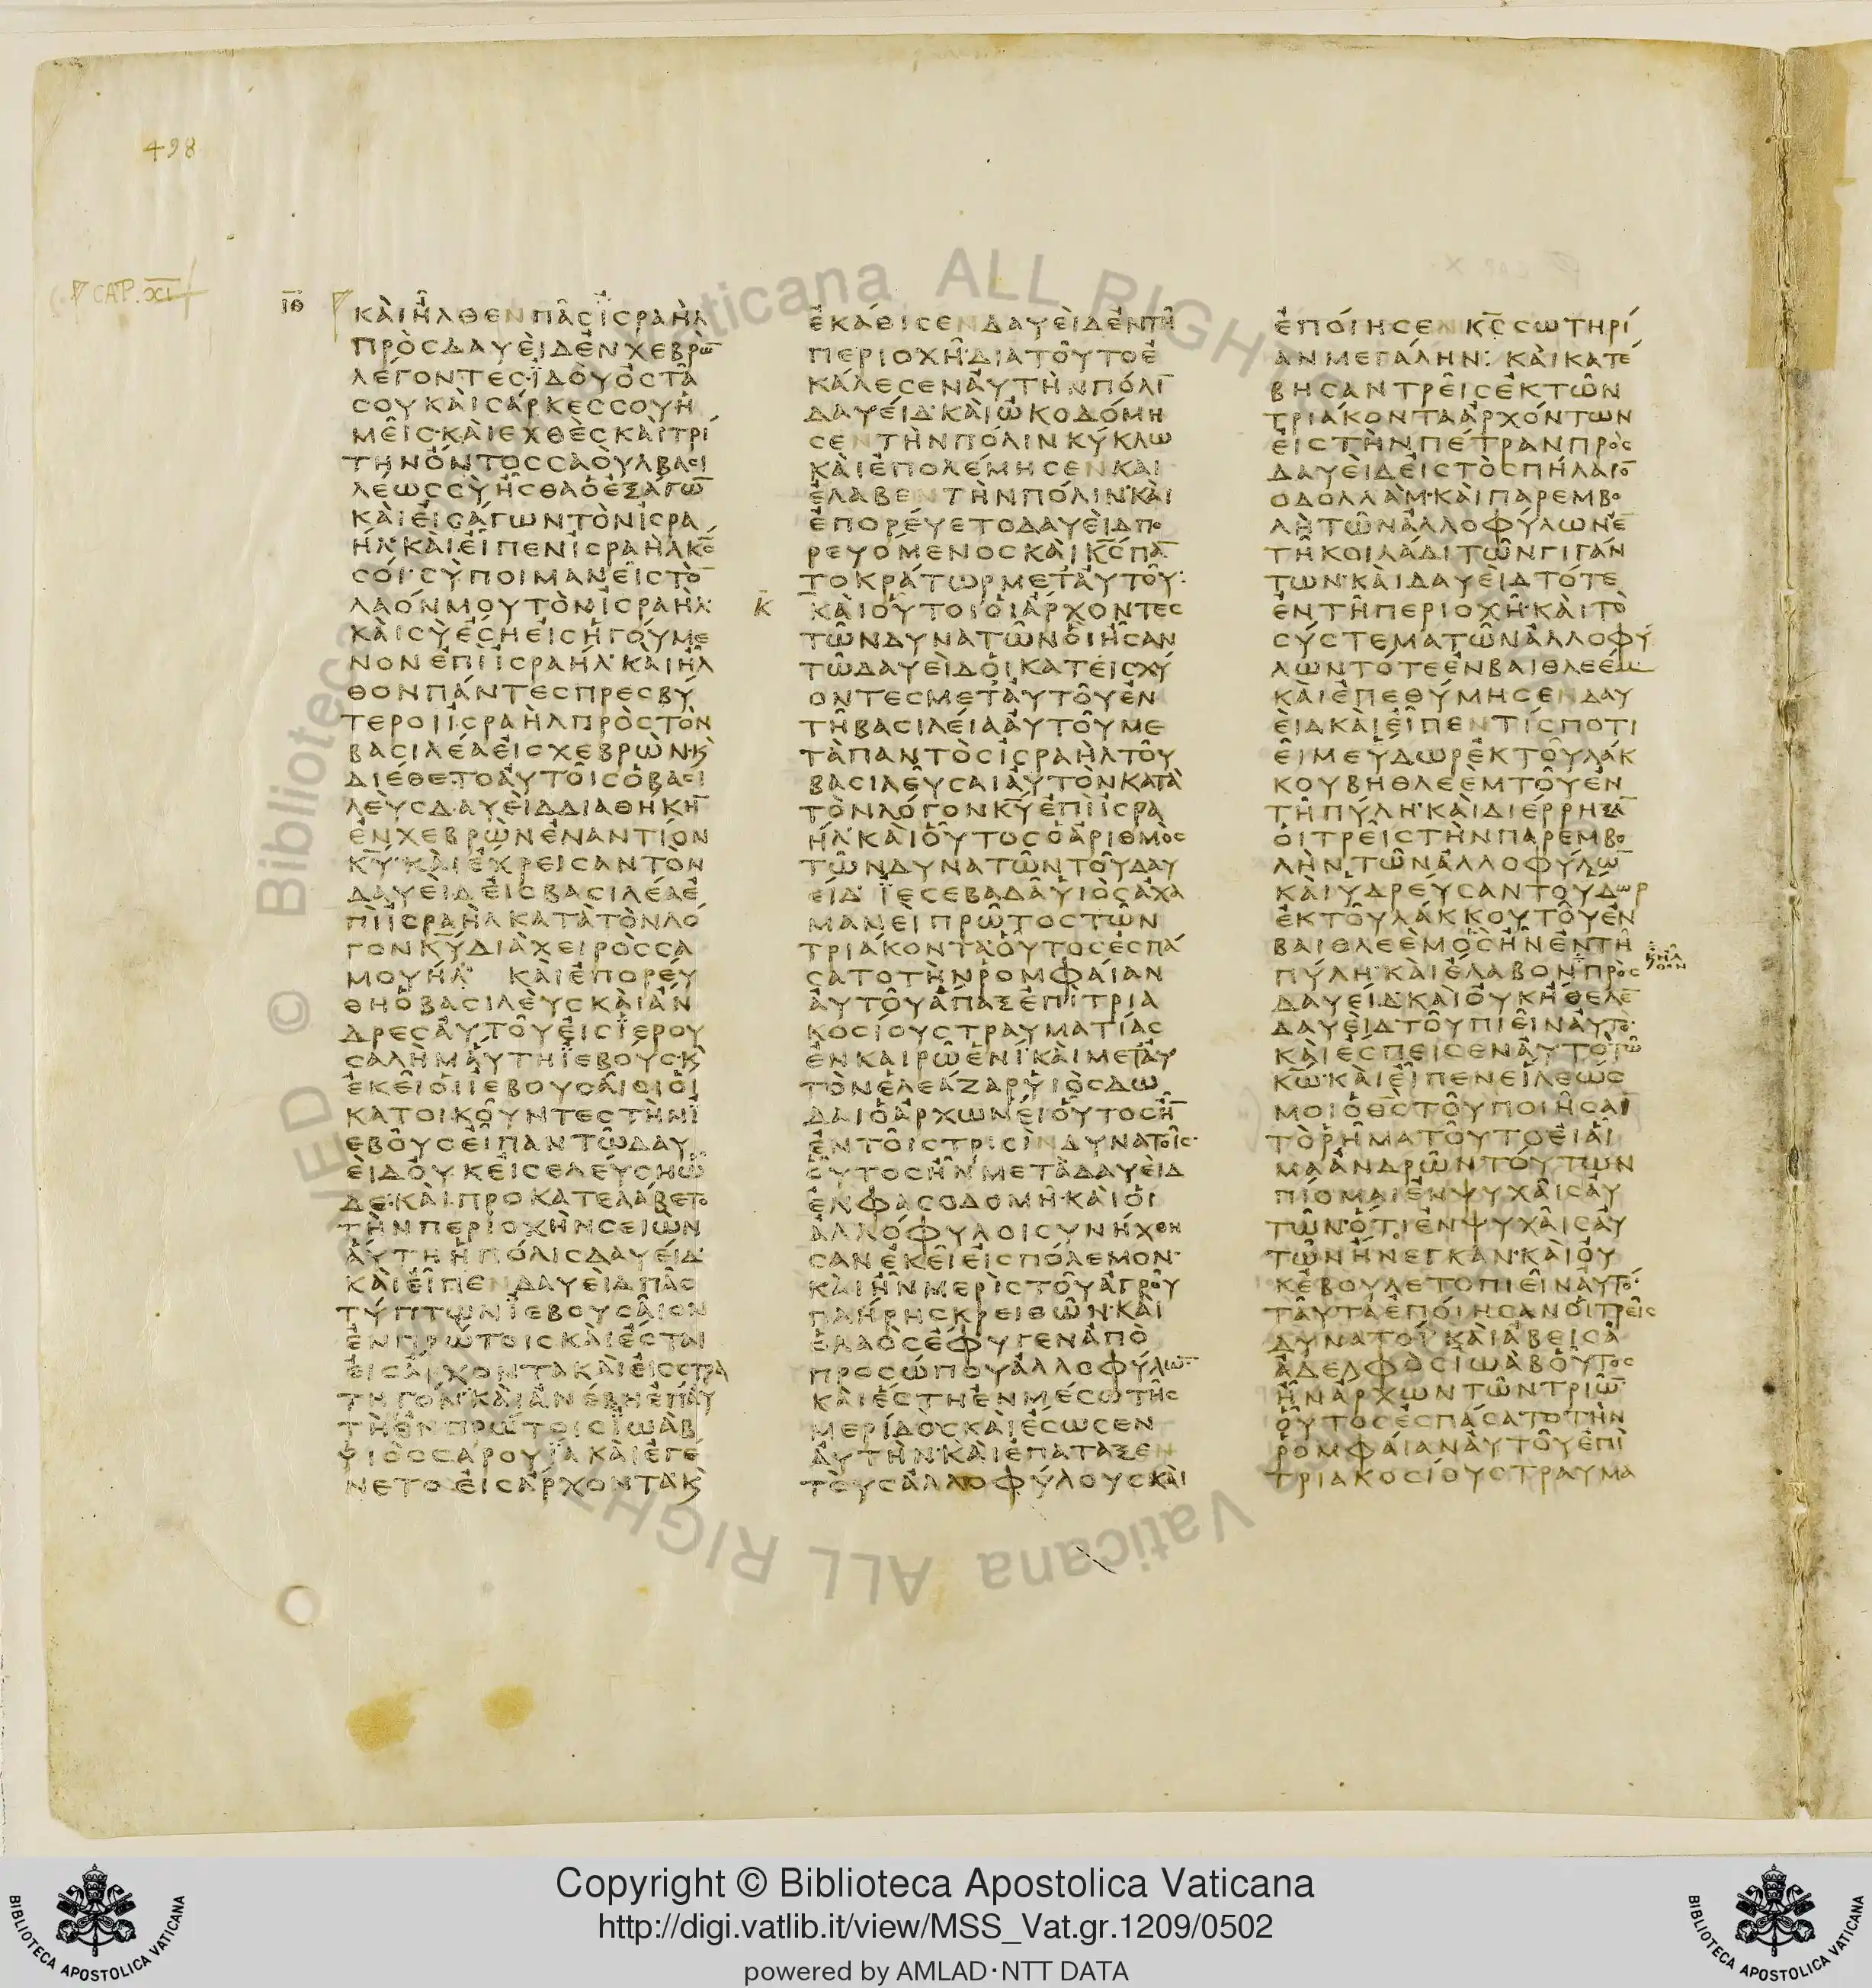 498
CAP. XI
ιθ
ΚΑΙΗΛΘΕΝΠΑϹΙϹΡΑΗΛ
ΠΡΟϹΔΑΥΕΙΔΕΝΧΕΒΡΩ̅
ΛΕΓΟΝΤΕϹΙΔΟΥΟϹΤΑ
ϹΟΥΚΑΙϹΑΡΚΕϹϹΟΥΗ
ΜΕΙϹΚΑΙΕΧΘΕϹΚΑΙΤΡΙ
ΤΗΝΟΝΤΟϹϹΑΟΥΛΒΑϹΙ
ΛΕΩϹϹΥΗϹΘΑΟΕΞΑΓΩ̅
ΚΑΙΕΙϹΑΓΩΝΤΟΝΙϹΡΑ
ΗΛΚΑΙΕΙΠΕΝΙϹΡΑΗΛΚ̅Ϲ̅
ϹΟΙϹΥΠΟΙΜΑΝΕΙϹΤΟ̅
ΛΑΟΝΜΟΥΤΟΝΙϹΡΑΗΛ
ΚΑΙϹΥΕϹΗΕΙϹΗΓΟΥΜΕ
ΝΟΝΕΠΙΙϹΡΑΗΛΚΑΙΗΛ
ΘΟΝΠΑΝΤΕϹΠΡΕϹΒΥ
ΤΕΡΟΙΙϹΡΑΗΛΠΡΟϹΤΟΝ
ΒΑϹΙΛΕΑΕΙϹΧΕΒΡΩΝϏ
ΔΙΕΘΕΤΟΑΥΤΟΙϹΟΒΑϹΙ
ΛΕΥϹΔΑΥΕΙΔΔΙΑΘΗΚΗ̅
ΕΝΧΕΒΡΩΝΕΝΑΝΤΙΟΝ
Κ̅Υ̅ΚΑΙΕΧΡΕΙϹΑΝΤΟΝ
ΔΑΥΕΙΔΕΙϹΒΑϹΙΛΕΑΕ
ΠΙΙϹΡΑΗΛΚΑΤΑΤΟΝΛΟ
ΓΟΝΚ̅Υ̅ΔΙΑΧΕΙΡΟϹϹΑ
ΜΟΥΗΛ ΚΑΙΕΠΟΡΕΥ
ΘΗΟΒΑϹΙΛΕΥϹΚΑΙΑΝ
ΔΡΕϹΑΥΤΟΥΕΙϹΙΕΡΟΥ
ϹΑΛΗΜΑΥΤΗΙΕΒΟΥϹϏ
ΕΚΕΙΟΙΙΕΒΟΥϹΑΙΟΙΟΙ
ΚΑΤΟΙΚΟΥΝΤΕϹΤΗΝΙ
ΕΒΟΥϹΕΙΠΑΝΤΩΔΑΥ
ΕΙΔΟΥΚΕΙϹΕΛΕΥϹΗΩ
ΔΕΚΑΙΠΡΟΚΑΤΕΛΑΒΕΤΟ
ΤΗΝΠΕΡΙΟΧΗΝϹΕΙΩΝ
ΑΥΤΗΗΠΟΛΙϹΔΑΥΕΙΔ
ΚΑΙΕΙΠΕΝΔΑΥΕΙΔΠΑϹ
ΤΥΠΤΩΝΙΕΒΟΥϹΑΙΟΝ
ΕΝΠΡΩΤΟΙϹΚΑΙΕϹΤΑΙ
ΕΙϹΑΡΧΟΝΤΑΚΑΙΕΙϹϹΤΡΑ
ΤΗΓΟΝΚΑΙΑΝΕΒΗΕΠΑΥ
ΤΗΕΝΠΡΩΤΟΙϹΙΩΑΒ
ΥΙΟϹϹΑΡΟΥΙΑΚΑΙΕΓΕ
ΝΕΤΟΕΙϹΑΡΧΟΝΤΑϏ
ΕΚΑΘΙϹΕΝΔΑΥΕΙΔΕΝΤΗ
ΠΕΡΙΟΧΗΔΙΑΤΟΥΤΟΕ
ΚΑΛΕϹΕΝΑΥΤΗΝΠΟΛΙ̅
ΔΑΥΕΙΔΚΑΙΩΚΟΔΟΜΗ
ϹΕΝΤΗΝΠΟΛΙΝΚΥΚΛΩ
ΚΑΙΕΠΟΛΕΜΗϹΕΝΚΑΙ
ΕΛΑΒΕΝΤΗΝΠΟΛΙΝΚΑΙ
ΕΠΟΡΕΥΕΤΟΔΑΥΕΙΔΠΟ
ΡΕΥΟΜΕΝΟϹΚΑΙΚ̅Ϲ̅ΠΑ̅
ΤΟΚΡΑΤΩΡΜΕΤΑΥΤΟΥ:
κ
ΚΑΙΟΥΤΟΙΟΙΑΡΧΟΝΤΕϹ
ΤΩΝΔΥΝΑΤΩΝΟΙΗϹΑΝ
ΤΩΔΑΥΕΙΔΟΙΚΑΤΕΙϹΧΥ
ΟΝΤΕϹΜΕΤΑΥΤΟΥΕΝ
ΤΗΒΑϹΙΛΕΙΑΑΥΤΟΥΜΕ
ΤΑΠΑΝΤΟϹΙϹΡΑΗΛΤΟΥ
ΒΑϹΙΛΕΥϹΑΙΑΥΤΟΝΚΑΤΑ
ΤΟΝΛΟΓΟΝΚ̅Υ̅ΕΠΙΙϹΡΑ
ΗΛΚΑΙΟΥΤΟϹΟΑΡΙΘΜΟϹ
ΤΩΝΔΥΝΑΤΩΝΤΟΥΔΑΥ
ΕΙΔΙΕϹΕΒΑΔΑΥΙΟϹΑΧΑ
ΜΑΝΕΙΠΡΩΤΟϹΤΩΝ
ΤΡΙΑΚΟΝΤΑΟΥΤΟϹΕϹΠΑ
ϹΑΤΟΤΗΝΡΟΜΦΑΙΑΝ
ΑΥΤΟΥΑΠΑΞΕΠΙΤΡΙΑ
ΚΟϹΙΟΥϹΤΡΑΥΜΑΤΙΑϹ
ΕΝΚΑΙΡΩΕΝΙΚΑΙΜΕΤΑΥ
ΤΟΝΕΛΕΑΖΑΡΥΙΟϹΔΩ
ΔΑΙΟΑΡΧΩΝΕΙΟΥΤΟϹΗ̅
ΕΝΤΟΙϹΤΡΙϹΙΝΔΥΝΑΤΟΙϹ
ΟΥΤΟϹΗΝΜΕΤΑΔΑΥΕΙΔ
ΕΝΦΑϹΟΔΟΜΗΚΑΙΟΙ
ΑΛΛΟΦΥΛΟΙϹΥΝΗΧΘΗ
ϹΑΝΕΚΕΙΕΙϹΠΟΛΕΜΟΝ
ΚΑΙΗΝΜΕΡΙϹΤΟΥΑΓΡΟΥ
ΠΛΗΡΗϹΚΡΕΙΘΩΝΚΑΙ
ΟΛΑΟϹΕΦΥΓΕΝΑΠΟ
ΠΡΟϹΩΠΟΥΑΛΛΟΦΥΛΩ̅
ΚΑΙΕϹΤΗΕΝΜΕϹΩΤΗϹ
ΜΕΡΙΔΟϹΚΑΙΕϹΩϹΕΝ
ΑΥΤΗΝΚΑΙΕΠΑΤΑΞΕΝ
ΤΟΥϹΑΛΛΟΦΥΛΟΥϹΚΑΙ
ΕΠΟΙΗϹΕΝΚ̅Ϲ̅ϹΩΤΗΡΙ
ΑΝΜΕΓΑΛΗΝ: ΚΑΙΚΑΤΕ
ΒΗϹΑΝΤΡΕΙϹΕΚΤΩΝ
ΤΡΙΑΚΟΝΤΑΑΡΧΟΝΤΩΝ
ΕΙϹΤΗΝΠΕΤΡΑΝΠΡΟϹ
ΔΑΥΕΙΔΕΙϹΤΟϹΠΗΛΑΙΟ̅
ΟΔΟΛΛΑΜΚΑΙΠΑΡΕΜΒΟ
ΛΗΤΩΝΑΛΛΟΦΥΛΩΝΕ̅
ΤΗΚΟΙΛΑΔΙΤΩΝΓΙΓΑΝ
ΤΩΝΚΑΙΔΑΥΕΙΔΤΟΤΕ
ΕΝΤΗΠΕΡΙΟΧΗΚΑΙΤΟ
ϹΥϹΤΕΜΑΤΩΝΑΛΛΟΦΥ
ΛΩΝΤΟΤΕΕΝΒΑΙΘΛΕΕΜ
ΚΑΙΕΠΕΘΥΜΗϹΕΝΔΑΥ
ΕΙΔΚΑΙΕΙΠΕΝΤΙϹΠΟΤΙ
ΕΙΜΕΥΔΩΡΕΚΤΟΥΛΑΚ
ΚΟΥΒΗΘΛΕΕΜΤΟΥΕΝ
ΤΗΠΥΛΗΚΑΙΔΙΕΡΡΗΞΑ̅
ΟΙΤΡΕΙϹΤΗΝΠΑΡΕΜΒΟ
ΛΗΝΤΩΝΑΛΛΟΦΥΛΩ̅
ΚΑΙΥΔΡΕΥϹΑΝΤΟΥΔΩΡ
ΕΚΤΟΥΛΑΚΚΟΥΤΟΥΕΝ
ΒΑΙΘΛΕΕΜΟϹΗΝΕΝΤΗ
ΠΥΛΗΚΑΙΕΛΑΒΟΝΠΡΟϹ
ϏΗΛΘΟΝ
ΔΑΥΕΙΔΚΑΙΟΥΚΗΘΕΛΕ̅
ΔΑΥΕΙΔΤΟΥΠΙΕΙΝΑΥΤΟ
ΚΑΙΕϹΠΕΙϹΕΝΑΥΤΟΤΩ
Κ̅Ω̅ΚΑΙΕΙΠΕΝΕΙΛΕΩϹ
ΜΟΙΟΘ̅Ϲ̅ΤΟΥΠΟΙΗϹΑΙ
ΤΟΡΗΜΑΤΟΥΤΟΕΙΑΙ
ΜΑΑΝΔΡΩΝΤΟΥΤΩΝ
ΠΙΟΜΑΙΕΝΨΥΧΑΙϹΑΥ
ΤΩΝΟΤΙΕΝΨΥΧΑΙϹΑΥ
ΤΩΝΗΝΕΓΚΑΝΚΑΙΟΥ
ΚΕΒΟΥΛΕΤΟΠΙΕΙΝΑΥΤΟ
ΤΑΥΤΑΕΠΟΙΗϹΑΝΟΙΤΡΕΙϹ
ΔΥΝΑΤΟΙΚΑΙΑΒΕΙϹΑ
ΑΔΕΛΦΟϹΙΩΑΒΟΥΤΟϹ
ΗΝΑΡΧΩΝΤΩΝΤΡΙΩ̅
ΟΥΤΟϹΕϹΠΑϹΑΤΟΤΗΝ
ΡΟΜΦΑΙΑΝΑΥΤΟΥΕΠΙ
ΤΡΙΑΚΟϹΙΟΥϹΤΡΑΥΜΑ
Copyright © Biblioteca Apostolica Vaticana
http://digi.vatlib.it/view/MSS_Vat.gr.1209/0502
powered by AMLAD·NTT DATA
BIBLIOTECA APOSTOLICA VATICANA
BIBLIOTECA APOSTOLICA VATICANA